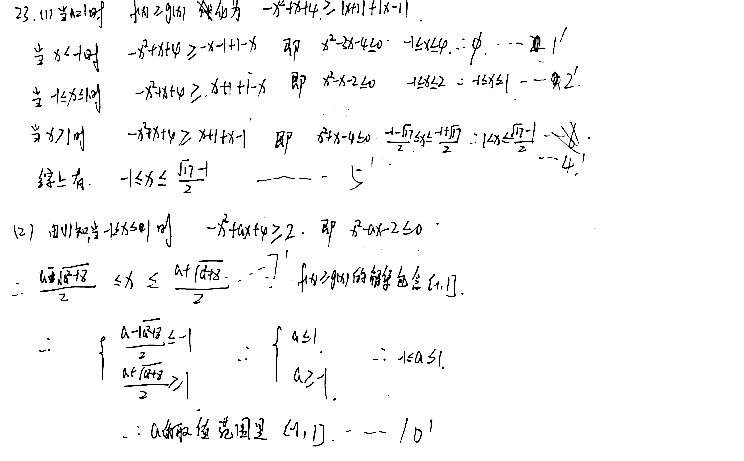 23. (1) 当a=1时 f(x)≥g(x) 为 -x²+x+4≥|x+1|+|x-1|
当x<-1时 -x²+x+4≥-x-1+1-x 即 x²-3x-4≤0 -1≤x≤4 ∴∅ ……1'
当-1≤x≤1时 -x²+x+4≥x+1+1-x 即 x²-x-2≤0 -1≤x≤2 ∴-1≤x≤1 ……2'
当x>1时 -x²+x+4≥x+1+x-1 即 x²+x-4≤0 (-1-√17)/2≤x≤(-1+√17)/2 ∴1<x≤(√17-1)/2 ……4'
综上有 -1≤x≤(√17-1)/2 ……5'
(2) 由(1)知,当-1≤x≤1时 -x²+ax+4≥2. 即 x²-ax-2≤0
∴ (a-√(a²+8))/2 ≤x≤ (a+√(a²+8))/2 ……7' f(x)≥g(x)的解集包含[-1,1].
∴ { (a-√(a²+8))/2≤-1 (a+√(a²+8))/2≥1 ∴ { a≤1 a≥-1 ∴ -1≤a≤1.
∴a的取值范围是[-1,1]. ……10'